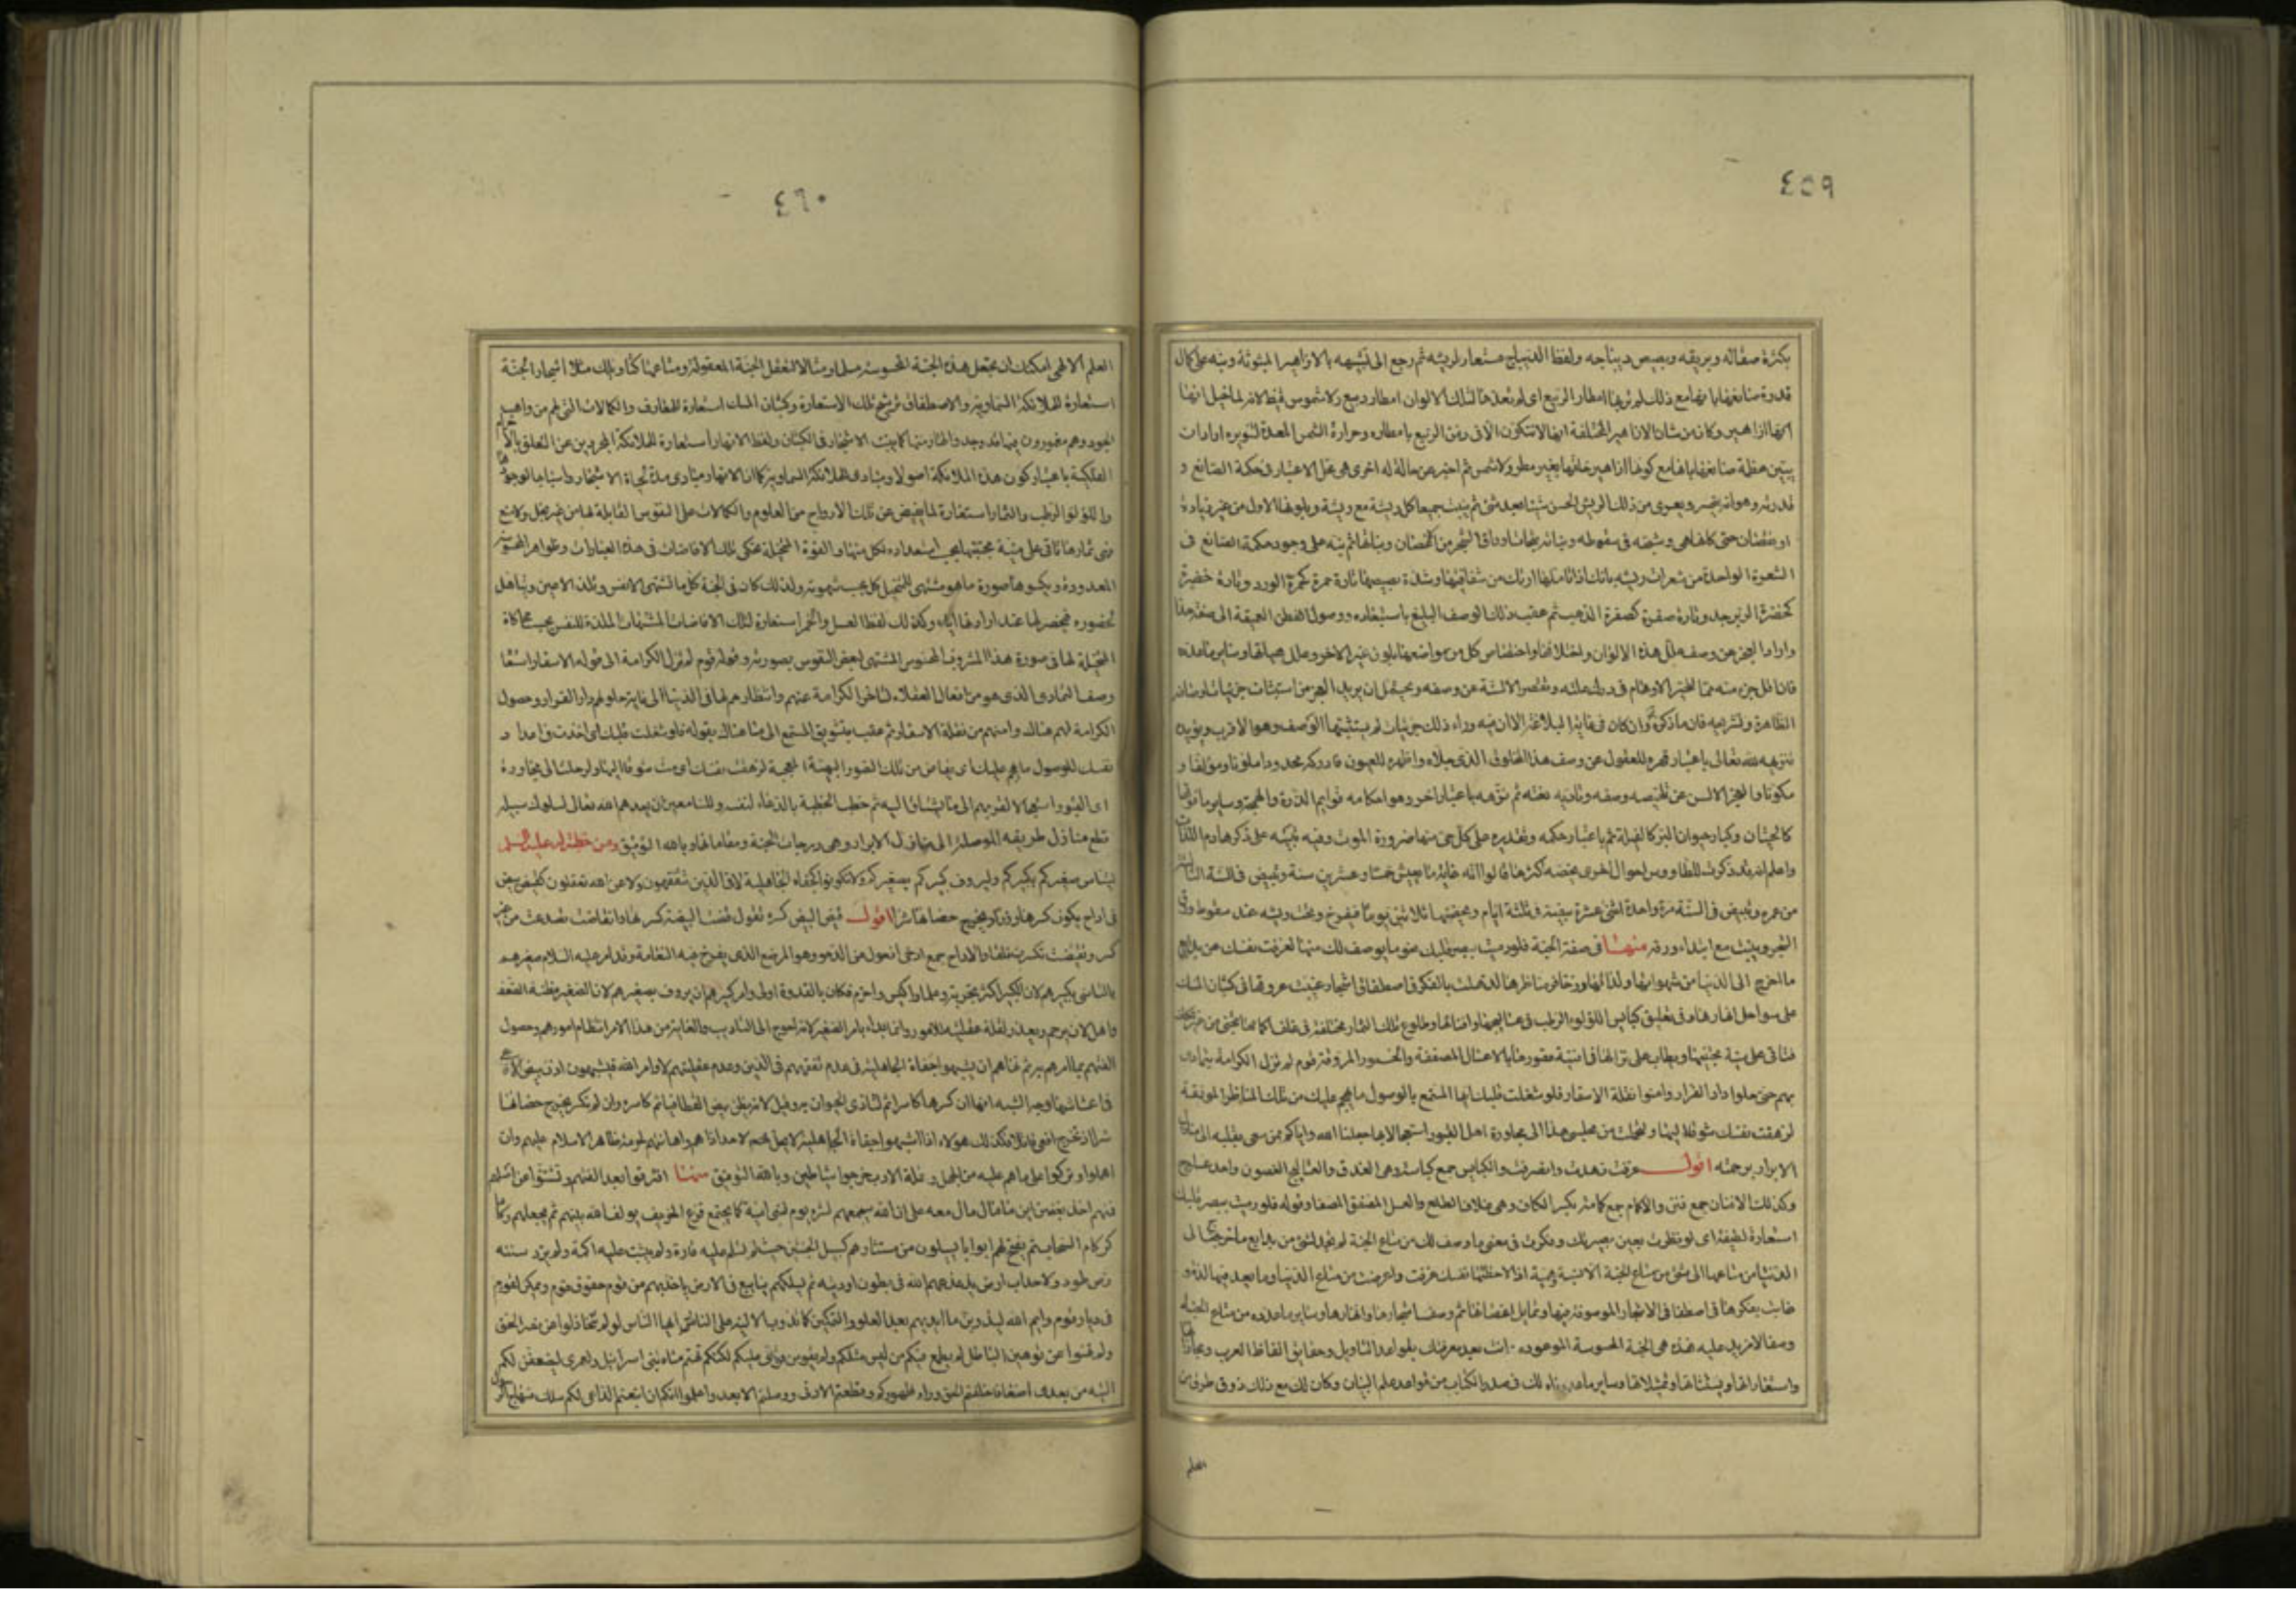 ٤٥٩
بكثرة صقاله وبريقه وبصيص ديباجه ولفظ الديباج مستعار لريشه ثم رجع الى تشبيهه بالازاهير المبثوثة ونبه على كمال
قدرة صانعها بانها مع ذلك لم تربها امطار الربيع اى لم تعدها لتلك الالوان امطار ربيع ولا شموس قيظ لانه لما خيل انها
ازاهير وكان من شان الازاهير المختلفة انها لا تتكون الا فى زمن الربيع بامطاره وحرارة الشمس المعدة لتنويره اراد ان
يبين عظمة صانعها بانها مع كونها ازاهير خلقها بغير مطر ولا شمس ثم اخبر عن حالة له اخرى هى محل الاعتبار فى حكمة الصانع و
قدرته وهو انه يتحسر ويعرى من ذلك الريش الحسن شيئا بعد شئ ثم ينبت جميعا كل ريشة مع ريشة وبلونها الاول من غير زيادة
او نقصان حتى كانها هى وشبهه فى سقوطه ونباته بانحتات اوراق الشجر من الاغصان ونباتها ثم نبه على وجود حكمة الصانع فى
الشعرة الواحدة من شعرات ريشه بانك اذا تاملتها ارتك من شفافيتها وشدة بصيصها تارة حمرة كحمرة الورد وتارة خضرة
كخضرة الزبرجد وتارة صفرة كصفرة الذهب ثم عقب ذلك الوصف البليغ باستبعاده ووصول الفطن العميقة الى صفة هذا
واراد العجز عن وصف علل هذه الالوان واختلافها واختصاص كل من مواضعها بلون غير الاخر وعلل هيئاتها وساير ما عدده
فان اقل جزء منه مما تحير الاوهام فى درك علته وتقصر الالسنة عن وصفه ويحتمل ان يريد العجز عن استثبات جزئيات اوصافه
الظاهرة وتشريحه فان ما ذكره وان كان فى غاية البلاغة الا ان فيه وراء ذلك جزئيات لم يستثبتها الوصف وهو الاقرب ويؤيده
تنزيهه لله تعالى باعتبار قهره للعقول عن وصف هذا المخلوق الذى جلاه واظهره للعيون فادركته محدودا ملونا ومؤلفا و
مكونا واعجز الالسن عن تلخيص وصفه وتادية نعته ثم نزهه باعتبار اخر وهو احكامه قوايم الذرة والهمجة وساير ما فوقها
كالحيتان وكبار حيوان البر كالفيلة ثم باعتبار حكمه وتقديره على كل حى منها ضرورة الموت وفيه تنبيه على ذكر هادم اللذات
واعلم انه قد ذكرت للطاووس احوال اخرى يختص به اكثرها قالوا انه غاية ما يعيش خمسا وعشرين سنة ويبيض فى السنة الثالثة
من عمره ويبيض فى السنة مرة واحدة اثنتى عشرة بيضة فى ثلثة ايام ويحضنها ثلاثين يوما فيفرخ وتنحت ريشه عند سقوط ورق
الشجر وينبت مع ابتداء ورقه منها فى صفة الجنة فلو رميت ببصر قلبك نحو ما يوصف لك منها لعزفت نفسك عن بدايع
ما اخرج الى الدنيا من شهواتها ولذاتها وزخارف مناظرها لذهلت بالفكر فى اصطفاق اشجار غيبت عروقها فى كثبان المسك
على سواحل انهارها وفى تعليق كبايس اللؤلوء الرطب فى عساليجها وافنانها وطلوع تلك الثمار مختلفة فى غلف اكمامها تجنى من غير تكلف
فتاتى على منية مجتنيها ويطاف على نزالها فى افنية قصورها بالاعسال المصفقة والخمور المروقة قوم لم تزل الكرامة تتمادى
بهم حتى حلوا دار القرار وامنوا نقلة الاسفار فلو شغلت قلبك ايها المستمع بالوصول الى ما يهجم عليك من تلك المناظر المونقة
لزهقت نفسك شوقا اليها ولتحملت من مجلسى هذا الى مجاورة اهل القبور استعجالا بها جعلنا الله واياكم ممن سعى بقلبه الى منازل
الابرار برحمته اقول عزفت زهدت وانصرفت والكبايس جمع كباسة وهى العذق والعساليج الغصون واحد عسلوج
وكذلك الافنان جمع فنن والاكمام جمع كمامة بكسر الكاف وهى غلاف الطلع والعسل المصفق المصفا وقوله فلو رميت ببصر قلبك
استعارة لطيفة اى لو نظرت بعين بصيرتك وفكرت فى معنى ما وصف لك من متاع الجنة لم تجد لشئ من بدايع ما اخرج الى
الدنيا من متاعها الى شئ من متاع الجنة الا نسبة وهمية اذا لاحظتها نفسك عزفت واعرضت عن متاع الدنيا وما يعد فيها لذة و
غابت بفكرها فى اصطفاق الاشجار الموصوفة فيها وتمايل اغصانها ثم وصف اشجارها وانهارها وساير ما عدده من متاع الجنة
وصفا لا مزيد عليه فهذه هى الجنة المحسوسة الموعودة وانت بعد معرفتك بقواعد التاويل وحقايق الفاظ العرب ومجازاتها
واستعاراتها وتشبيهاتها وتمثيلاتها وساير ما عددناه لك فى صدر الكتاب من قواعد علم البيان وكان لك مع ذلك ذوق طرف من
العلم
٤٦٠
العلم الالهى امكنك ان تجعل هذه الجنة المحسوسة سلما ومثالا لتعقل الجنة المعقولة ومتاعها كتاويلك مثلا اشجار الجنة
استعارة للملائكة السماوية والاصطفاق ترشيح تلك الاستعارة وكثبان المسك استعارة للمعارف والكمالات التى لهم من واهب
الجود وهم مغمورون فيها قد وجدوا لها ومنها كما ينبت الاشجار فى الكثبان ولفظ الانهار استعارة للملائكة المجردين عن التعلق بالاجرام
الفلكية باعتبار كون هذه الملائكة اصولا ومبادى للملائكة السماوية كما ان الانهار مبادى مادة لحياة الاشجار واسباب لوجودها
واللؤلؤ الرطب والثمار استعارة لما يفيض عن تلك الارواح من العلوم والكمالات على النفوس القابلة لها من غير بخل ولا منع
فهى ثمارها تاتى على منية مجتنيها بحسب استعداده لكل منها والقوة المتخيلة تحكى تلك الافاضات فى هذه العبارات وظواهر المحسوسة
المعدودة ويكسوها صورة ما هو مشتهى للمتخيل كل بحسب شهوته ولذلك كان فى الجنة كل ما تشتهى الانفس وتلذ الاعين ويتاهل
لحضوره فيحضر لها عند ارادتها اياه وكذلك لفظ العسل والخمر استعارة لتلك الافاضات المشتهيات الملذة للنفس بحسب محاكاة
المتخيلة لها فى صورة هذا المشروب المحسوس المشتهى لبعض النفوس بصورته وقوله قوم لم تزل الكرامة الى قوله الاسفار استعار
وصف التمادى الذى هو من افعال العقلاء لتاخر الكرامة عنهم وانتظارهم لها فى الدنيا الى غاية حلولهم دار القرار وحصول
الكرامة لهم هناك وامنهم من نقلة الاسفار ثم عقب بتشويق المستمع الى ما هناك بقوله فلو شغلت قلبك اى اخذت فى اعداد
نفسك للوصول ما يهجم عليك اى يفاض من تلك الصور البهية المعجبة لزهقت نفسك اى مت شوقا اليها ولرحلت الى مجاورة
اهل القبور استعجالا لقربهم الى ما يشتاق اليه ثم ختم الخطبة بالدعاء لنفسه وللسامعين ان يعدهم الله تعالى لسلوك سبيله
وقطع منازل طريقه الموصلة الى منازل الابرار وهى درجات الجنة ومقاماتها وبالله التوفيق ومن خطبة له عليه السلم
ليتاس صغيركم بكبيركم وليروف كبيركم بصغيركم ولا تكونوا كجفاة الجاهلية لا فى الدين تتفقهون ولا عن الله تعقلون كقيض بيض
فى اداح يكون كسرها وزرا ويخرج حضانها شرا اقول قيض البيض كسره تقول قضت البيضة كسرتها وانقاضت تصدعت من غير
كسر وتقيضت تكسرت فلقا والاداح جمع ادحى افعول من الدحو وهو الموضع الذى يفرخ فيه النعامة وقد امر عليه السلام صغيرهم
بالتاسى بكبيرهم لان الكبير اكثر تجربة وعلما واكيس واحزم فكان بالقدوة اولى وامر كبيرهم ان يروف بصغيرهم لان الصغير مظنة الضعف
واهل لان يرحم ويعذر لقلة عقليته للامور وانما ابتداء بامر الصغير لانه احوج الى التاديب والغاية من هذا الامر انتظام امورهم وحصول
الفتهم بما امرهم به ثم نهاهم ان يشبهوا جفاة الجاهلية فى عدم تفقههم فى الدين وعدم عقليتهم لاوامر الله فيشبهون اذن بيض الافاعى
فى اعشاشها ووجه الشبه انها ان كسرها كاسر اثم لتاذى الحيوان به وقيل لانه يظن بيض القطا فياثم كاسره وان لم تكسر يخرج حضانها
شرا اذ تخرج افعى قاتلا فكذلك هولاء اذا اشبهوا جفاة الجاهلية لا يحل لاحد اذاهم واهانتهم لحرمة ظاهر الاسلام عليهم وان
اهملوا وتركوا على ما هم عليه من الجهل وقلة الادب خرجوا شياطين وبالله التوفيق منها افترقوا بعد الفتهم وتشتتوا عن اصلهم
فمنهم اخذ بغصن اين ما مال مال معه على ان الله سيجمعهم لشر يوم لبنى امية كما يجتمع قزع الخريف يولف الله بينهم ثم يجعلهم ركاما
كركام السحاب ثم يفتح لهم ابوابا يسيلون من مستثارهم كسيل الجنتين حيث لم تسلم عليه قارة ولم يثبت عليه اكمة ولم يرد سننه
رص طود ولا حداب ارض يذعذعهم الله فى بطون اوديته ثم يسلكهم ينابيع فى الارض ياخذ بهم من قوم حقوق قوم ويمكن لقوم
فى ديار قوم وايم الله ليذوبن ما فى ايديهم بعد العلو والتمكين كما تذوب الالية على النار ايها الناس لو لم تتخاذلوا عن نصر الحق
ولم تهنوا عن توهين الباطل لم يطمع فيكم من ليس مثلكم ولم يقو من قوى عليكم لكنكم تهتم متاه بنى اسرائيل ولعمرى ليضعفن لكم
التيه من بعدى اضعافا خلفتم الحق وراء ظهوركم وقطعتم الادنى ووصلتم الابعد واعلموا انكم ان اتبعتم الداعى لكم سلك منهاج الرسول